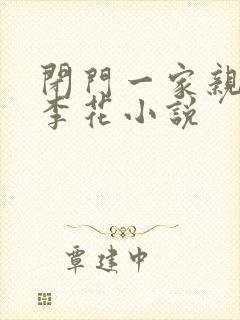 閉門一家親
李花小説
覃建中